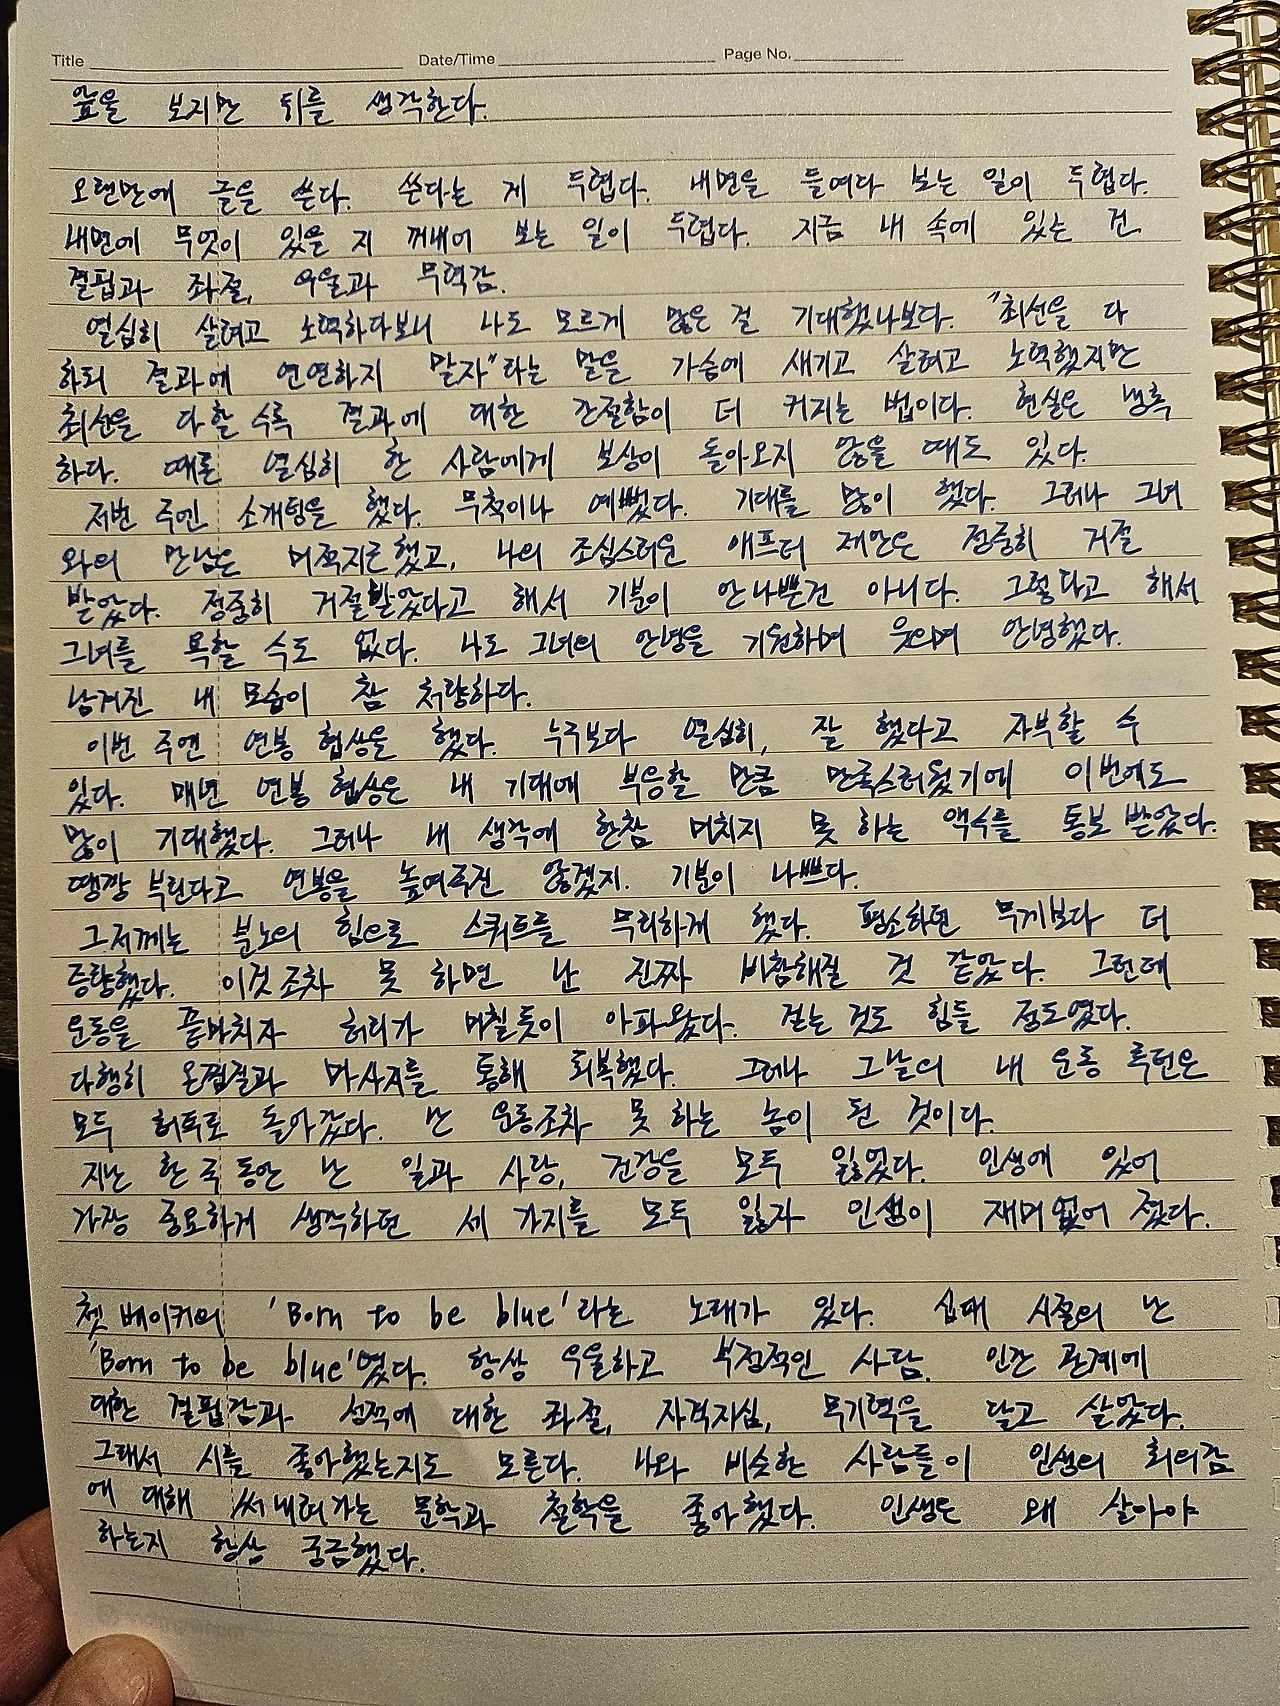 Title Date/Time Page No.
앞을 보지만 뒤를 생각한다.
오랜만에 글을 쓴다. 쓴다는 게 두렵다. 내면을 들여다 보는 일이 두렵다.
내면에 무엇이 있을 지 꺼내어 보는 일이 두렵다. 지금 내 속에 있는 건
결핍과 좌절, 우울과 무력감.
열심히 살려고 노력하다보니 나도 모르게 많은 걸 기대했나보다. "최선을 다
하되 결과에 연연하지 말자"라는 말을 가슴에 새기고 살려고 노력했지만
최선을 다할 수록 결과에 대한 간절함이 더 커지는 법이다. 현실은 냉혹
하다. 때론 열심히 한 사람에게 보상이 돌아오지 않을 때도 있다.
저번 주엔 소개팅을 했다. 무척이나 예뻤다. 기대를 많이 했다. 그러나 그녀
와의 만남은 머쩍지근했고, 나의 조심스러운 애프터 제안은 정중히 거절
받았다. 정중히 거절받았다고 해서 기분이 안나쁜건 아니다. 그렇다고 해서
그녀를 욕할 수도 없다. 나도 그녀의 안녕을 기원하며 웃으며 안녕했다.
남겨진 내 모습이 참 처량하다.
이번 주엔 연봉 협상을 했다. 누구보다 열심히, 잘 했다고 자부할 수
있다. 매년 연봉 협상은 내 기대에 부응할 만큼 만족스러웠기에 이번에도
많이 기대했다. 그러나 내 생각에 한참 미치지 못 하는 액수를 통보 받았다.
땡깡 부린다고 연봉을 높여주진 않겠지. 기분이 나쁘다.
그저께는 분노의 힘으로 스쿼트를 무리하게 했다. 평소하던 무게보다 더
증량했다. 이것조차 못 하면 난 진짜 비참해질 것 같았다. 그런데
운동을 끝마치자 허리가 미칠듯이 아파왔다. 걷는 것도 힘들 정도였다.
다행히 온찜질과 마사지를 통해 회복했다. 그러나 그날의 내 운동 루틴은
모두 허투로 돌아갔다. 난 운동조차 못 하는 놈이 된 것이다.
지난 한 주 동안 난 일과 사랑, 건강을 모두 잃었다. 인생에 있어
가장 중요하게 생각하던 세 가지를 모두 잃자 인생이 재미없어 졌다.
쳇 베이커의 'Born to be blue'라는 노래가 있다. 십대 시절의 난
'Born to be blue'였다. 항상 우울하고 부정적인 사람. 인간 관계에
대한 결핍감과 성적에 대한 좌절, 자격지심, 무기력을 달고 살았다.
그래서 시를 좋아했는지도 모른다. 나와 비슷한 사람들이 인생의 회의감
에 대해 써내려가는 문학과 철학을 좋아했다. 인생은 왜 살아야
하는지 항상 궁금했다.